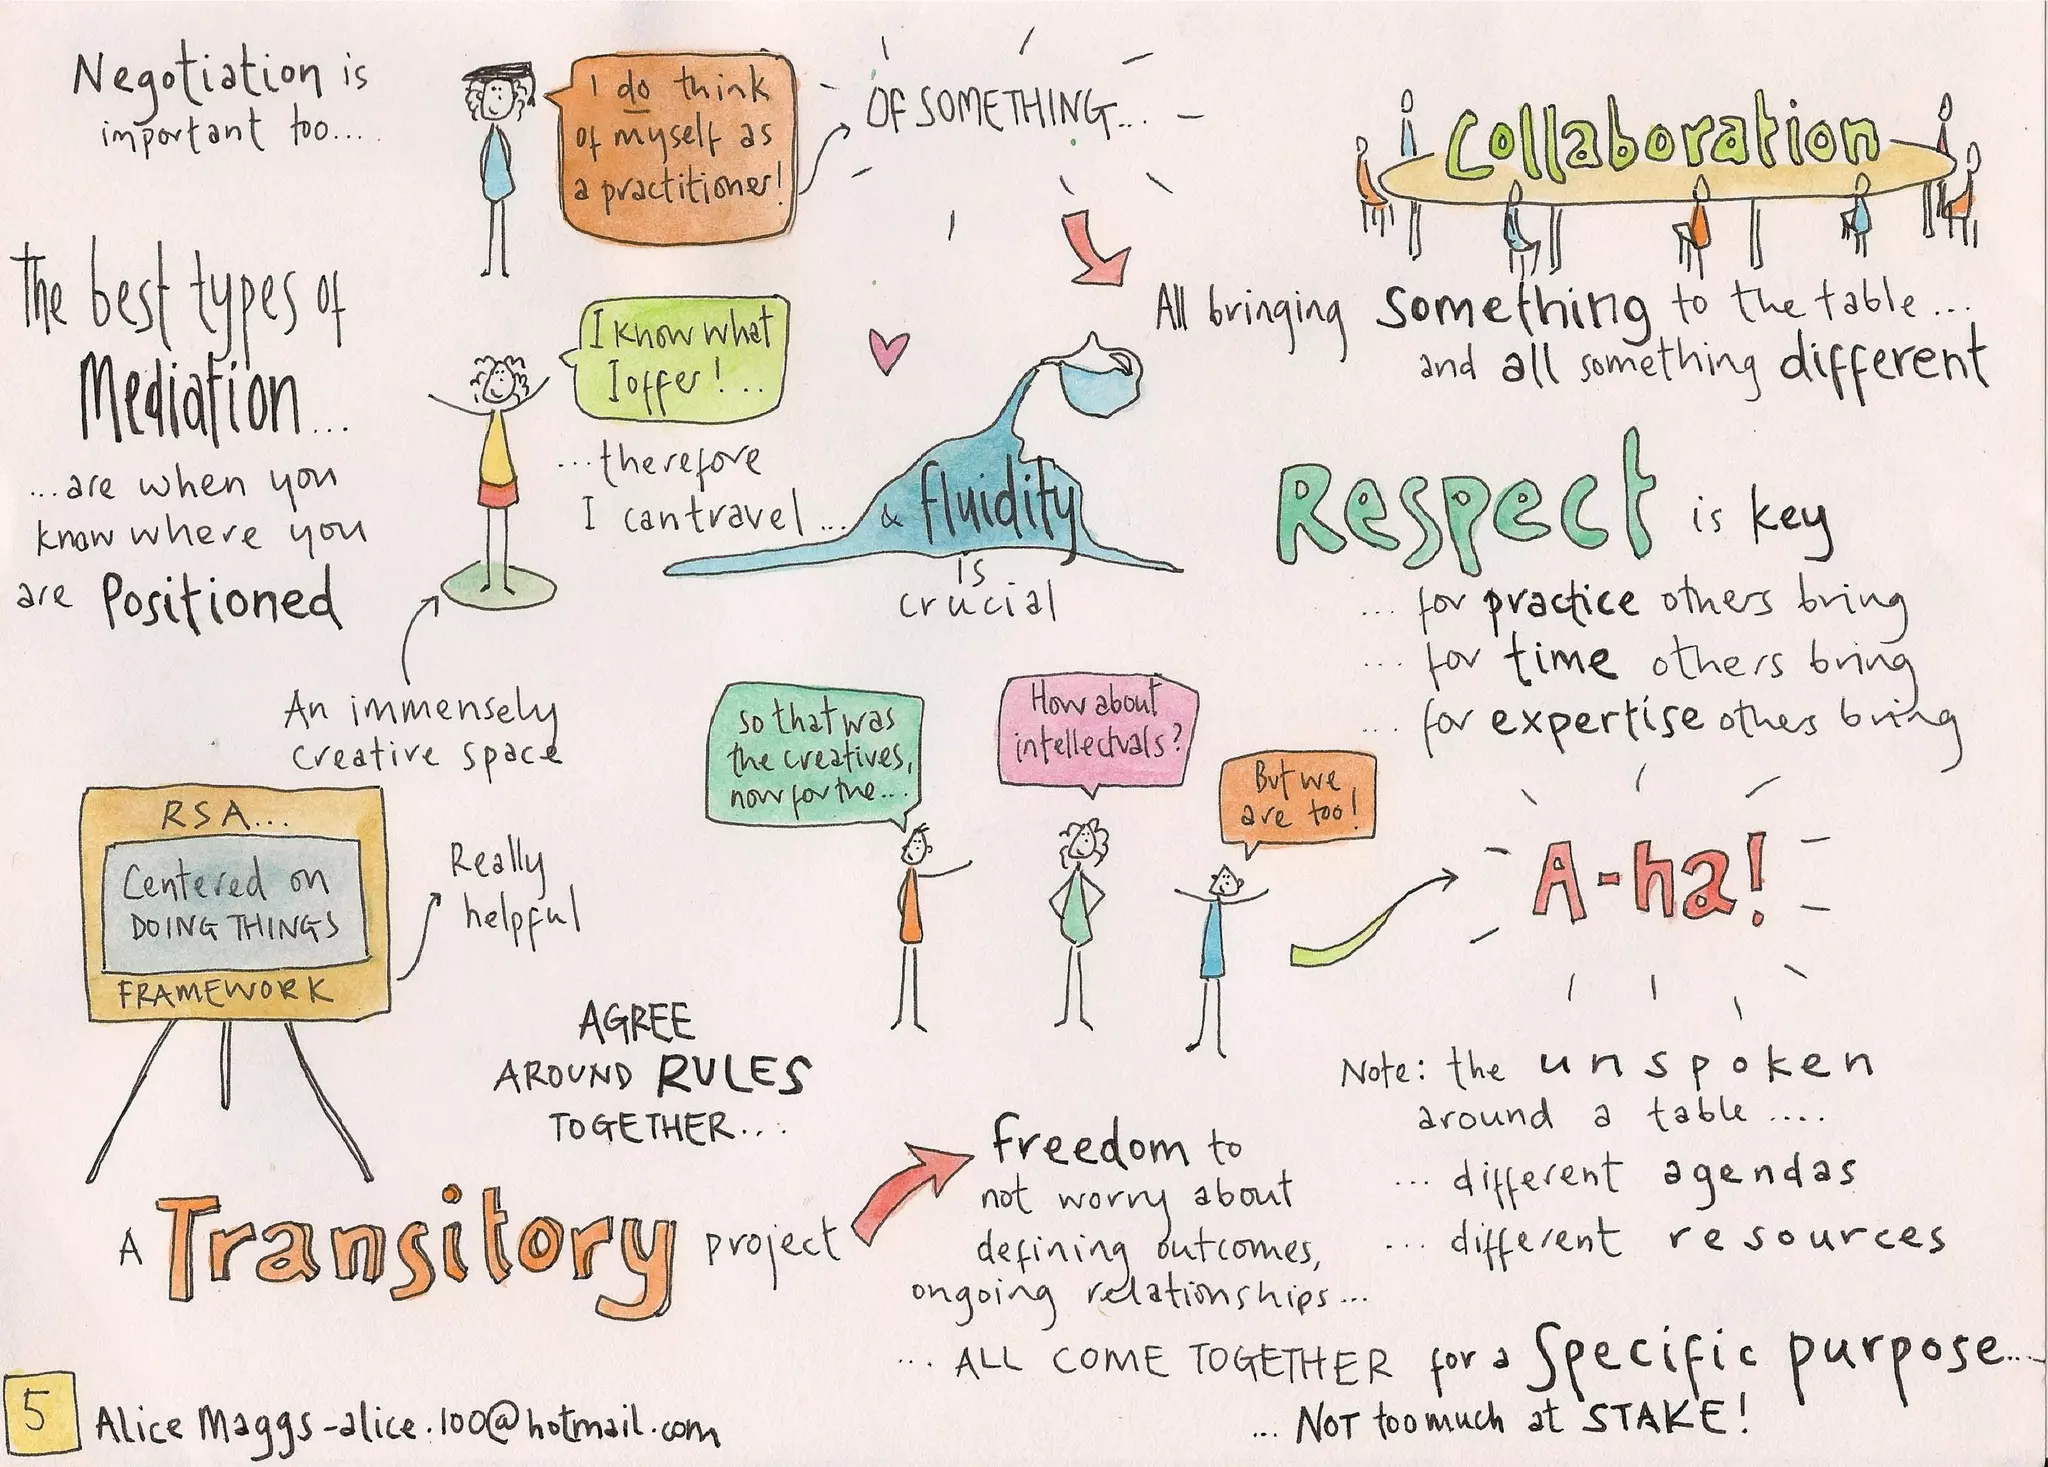 Negotiation is
important too....
I do think
of myself as
a practitioner!
OF SOMETHING...
Collaboration
All bringing something to the table...
and all something different
The best types of
Mediation...
...are when you
know where you
are Positioned
I know what
I offer!...
...therefore
I can travel...
& fluidity
is
crucial
Respect is key
... for practice others bring
... for time others bring
... for expertise others bring
An immensely
creative space
so that was
the creatives,
now for the...
How about
intellectuals?
But we
are too!
A-ha!
RSA...
Centered on
DOING THINGS
FRAMEWORK
Really
helpful
AGREE
AROUND RULES
TOGETHER...
Note: the unspoken
around a table....
... different agendas
... different resources
A Transitory project
freedom to
not worry about
defining outcomes,
ongoing relationships...
... ALL COME TOGETHER for a Specific purpose...
... NOT too much at STAKE!
5
Alice Maggs - alice.100@hotmail.com